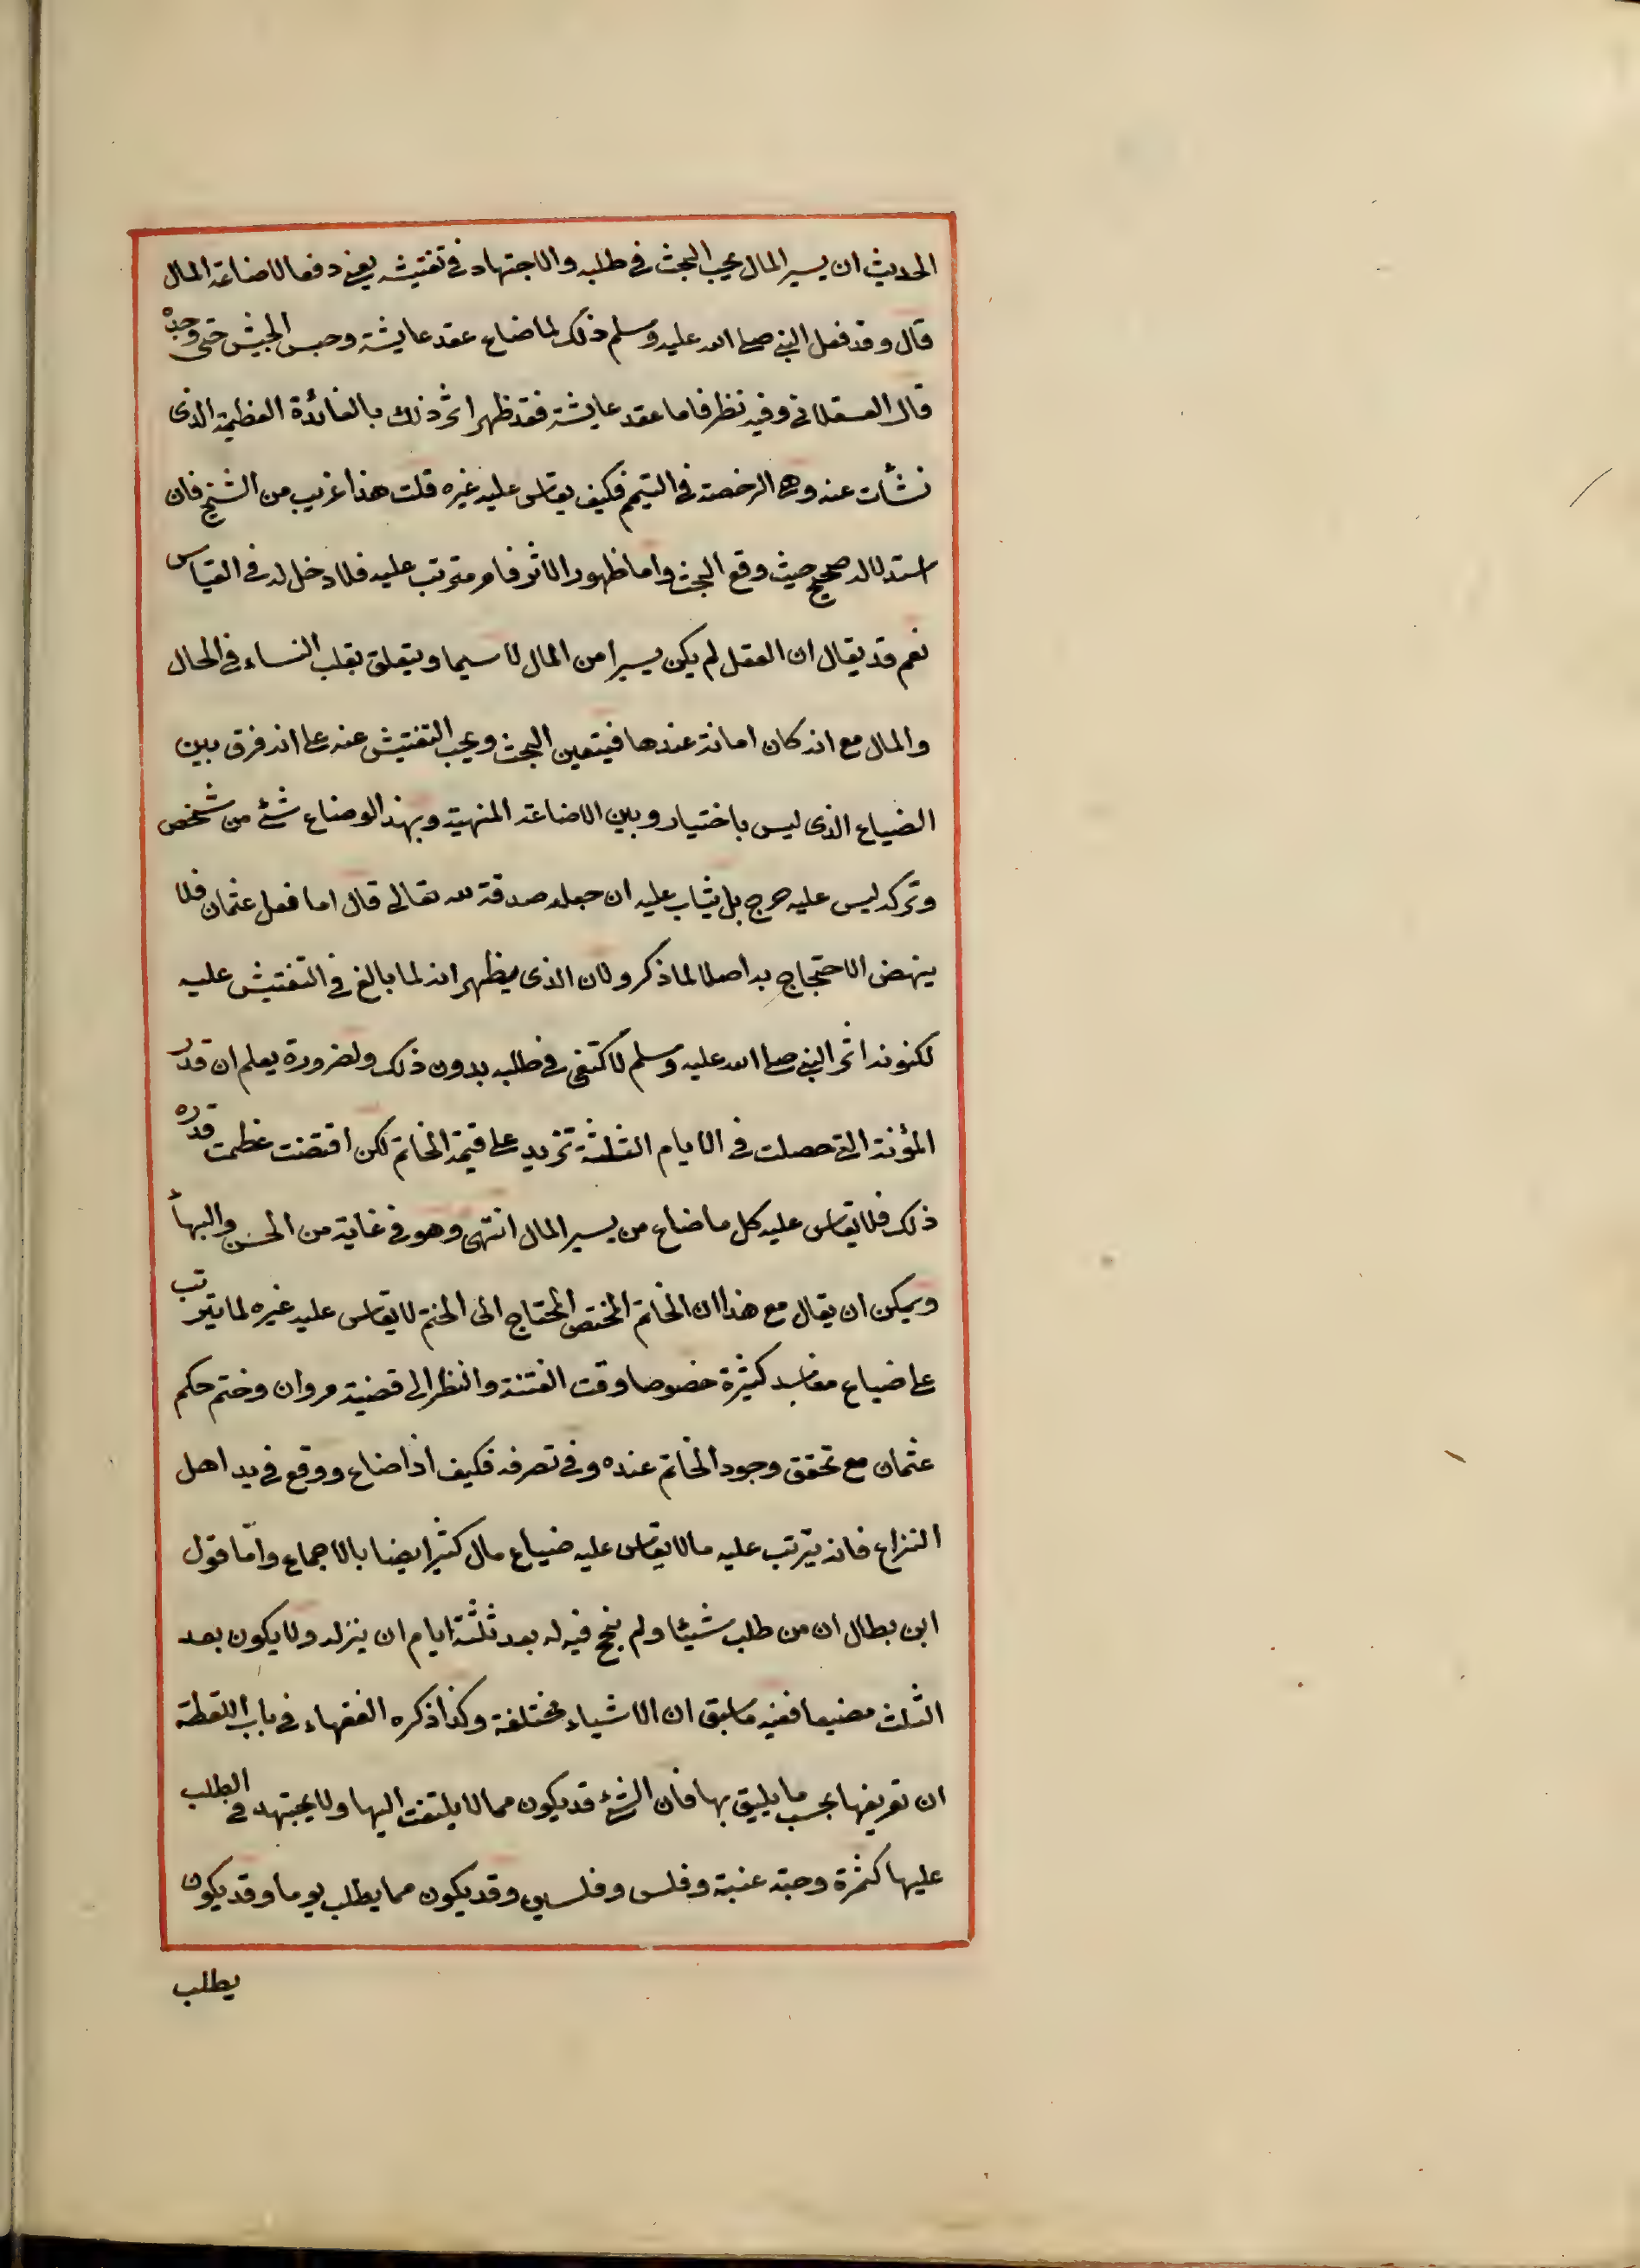 الحديث ان يسير المال يجب البحث في طلبه والاجتهاد في تفتيشه يعني دفعا لاضاعة المال
قال وقد فعل النبي صلى الله عليه وسلم ذلك لما ضاع عقد عايشة وحبس الجيش حتى وجده
قال العسقلاني وفيه نظر فاما عقد عايشة فقد ظهر اثر ذلك بالفائدة العظيمة الذى
نشأت عنه وهي الرخصة في التيمم فكيف يقاس عليه غيره قلت هذا غريب من الشيخ فان
استدلاله صحيح حيث وقع البحث واما ظهور الاثر فامر مترتب عليه فلا دخل له في القياس
نعم قد يقال ان العقد لم يكن يسيرا من المال لا سيما ويتعلق بقلب النساء في الحال
والمال مع انه كان امانة عندها فيتعين البحث ويجب التفتيش عنه على انه فرق بين
الضياع الذى ليس باختيار وبين الاضاعة المنهية وبهذا لو ضاع شئ من شخص
وتركه ليس عليه حرج بل يثاب عليه ان جعله صدقة لله تعالى قال اما فعل عثمان فلا
ينهض الاحتجاج به اصلا لما ذكر ولان الذى يظهر انه لما بالغ في التفتيش عليه
لكونه اثر النبي صلى الله عليه وسلم لاكتفى في طلبه بدون ذلك ولضرورة يعلم ان قدر
المؤنة التي حصلت في الايام الثلثة تزيد على قيمة الخاتم لكن اقتضت عظمت قدره
ذلك فلا يقاس عليه كل ما ضاع من يسير المال انتهى وهو في غاية من الحسن والبهاء
ويمكن ان يقال مع هذا ان الخاتم المختص المحتاج الى الختم لا يقاس عليه غيره لما يترتب
على ضياع مفاسد كثيرة خصوصا وقت الفتنة والنظر الى قضية مروان وختم حكم
عثمان مع تحقق وجود الخاتم عنده وفي تصرفه فكيف اذا ضاع ووقع في يد اهل
النزاع فانه يترتب عليه ما لا يقاس عليه ضياع مال كثير ايضا بالاجماع وامّا قول
ابن بطال ان من طلب شيئا ولم ينجح فيه له بعد ثلثة ايام ان ينزله ولا يكون بعد
الثلث مضيعا ففيه ما سبق ان الاشياء مختلفة وكذا ذكره الفقهاء في باب اللقطة
ان تعريفها بحسب ما يليق بها فان الشئ قد يكون مما لا يلتفت اليها ولا يجتهد في الطلب
عليها كثمرة وحبة عنبة وفلس وفلسين وقد يكون مما يطلب يوما وقد يكون
يطلب